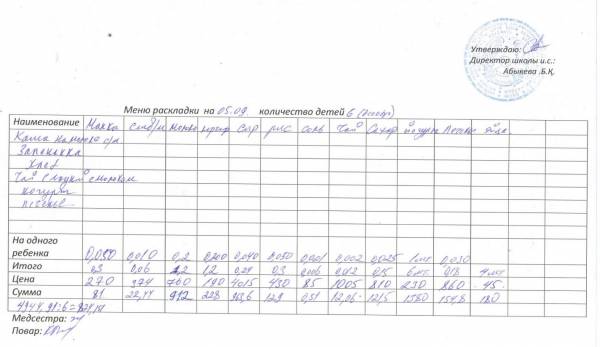 Утверждаю:
Директор школы и.с.:
Абыкева .Б.Қ.
Меню раскладки на 05.09 количество детей 6
Наименование Манка сл/м молоко картоф сыр рис соль Чай Сахар йогурт Печенье Яйцо
Каша на молоке с/м
Запеканка
Хлеб
Чай с молоком
йогурт
печенье
На одного
ребенка 0,050 0,010 0,2 0,200 0,040 0,050 0,001 0,002 0,025 1шт 0,030
Итого 0,3 0,06 1,2 1,2 0,24 0,3 0,006 0,012 0,15 6шт. 0,18 4шт
Цена 270 374 760 190 4015 430 85 1005 810 230 860 45
Сумма 81 22,44 912 228 963,6 129 0,51 12,06 121,5 1380 154,8 180
Медсестра:
Повар: